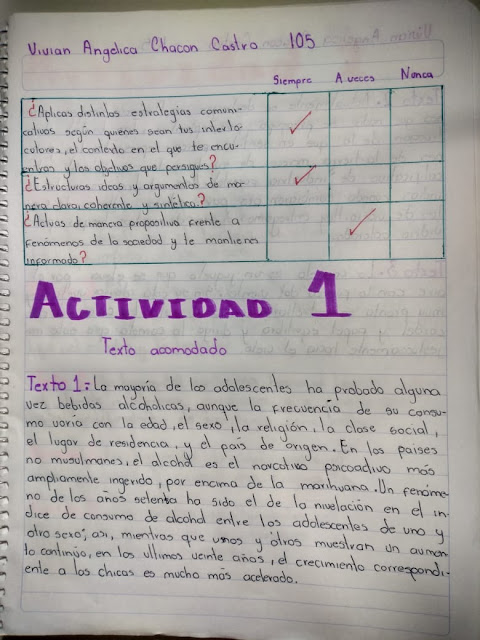 Vivian Angelica Chacon Castro 105
Siempre A veces Nunca
¿Aplicas distintas estrategias comuni-
cativas según quienes sean tus interlo-
cutores, el contexto en el que te encu-
entras y los objetivos que persigues?
¿Estructuras ideas y argumentos de ma-
nera clara, coherente y sintética?
¿Actuas de manera propositiva frente a
fenómenos de la sociedad y te mantienes
informado?
ACTIVIDAD 1
Texto acomodado
Texto 1: La mayoría de los adolescentes ha probado alguna
vez bebidas alcóholicas, aunque la frecuencia de su consu-
mo varia con la edad, el sexo, la religión, la clase social,
el lugar de residencia, y el país de origen. En los paises
no musulmanes, el alcohol es el narcotivo psicoactivo más
ampliamente ingerido, por encima de la marihuana. Un fenóme-
no de los años setenta ha sido el de la nivelación en el ín-
dice de consumo de alcohol entre los adolescentes de uno y
otro sexo; asi, mientras que unos y otros muestran un aumen-
to continúo, en los ultimos veinte años, el crecimiento correspondi-
ente a las chicas es mucho más acelerado.